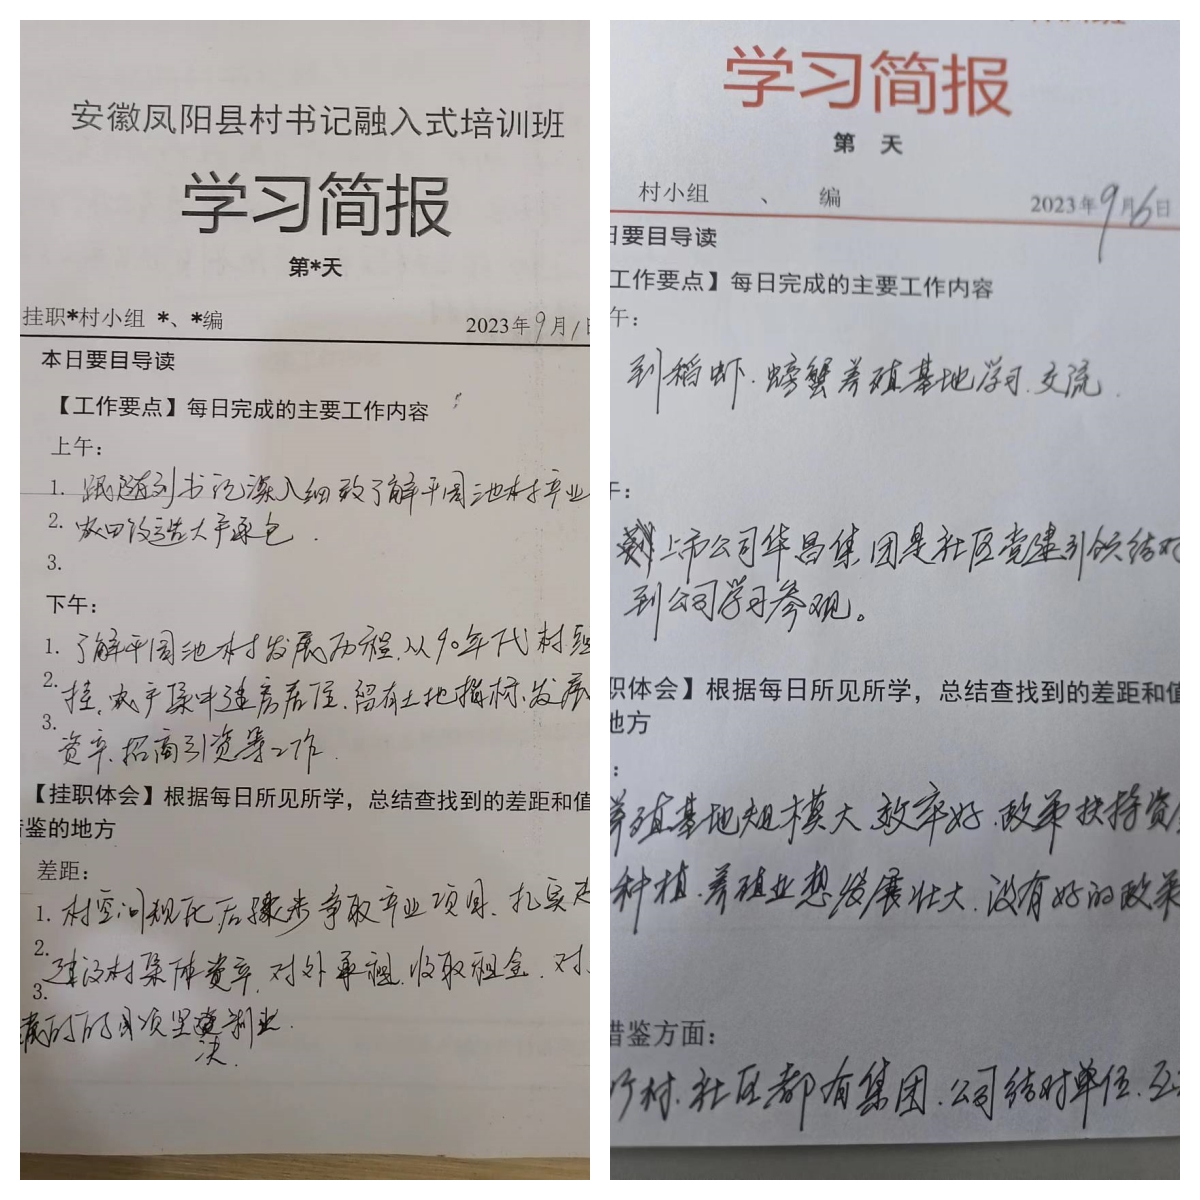 安徽凤阳县村书记融入式培训班
学习简报
第*天
挂职*村小组 *、*编
2023年9月1日
本日要目导读
【工作要点】每日完成的主要工作内容
上午：
1. 跟随刘书记深入细致了解平园池村产业
2. 农田改造大户承包.
3.
下午：
1. 了解平园池村发展历程,从90年代村
2. 挂,农户集中建房居住,留有土地指标,发展
3. 资产、招商引资等工作.
【挂职体会】根据每日所见所学，总结查找到的差距和值
借鉴的地方
差距：
1. 村空间规化后,争取产业项目,扎实
2. 建设村集体资产,对外承租,收取租金,对
3. 的项坚决
学习简报
第 天
村小组 、 编
2023年9月6日
日要目导读
工作要点】每日完成的主要工作内容
午：
到稻虾、螃蟹养殖基地学习、交流.
午：
上市公司华昌集团是社区党建引领结对
到公司学习参观。
职体会】根据每日所见所学，总结查找到的差距和值
地方
：
养殖基地规模大,效率好,政策扶持资金
种植、养殖业想发展壮大,没有好的政策
借鉴方面：
村、社区都有集团、公司结对单位,互